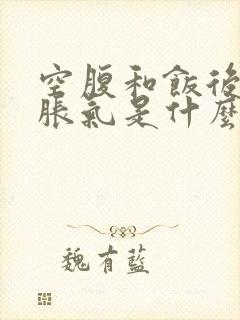 空腹和飯後
脹氣是什麼
魏有藍